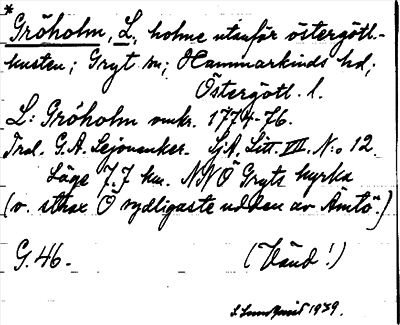 * Gröholm, L. holme utanför östergötl.-
kusten; Gryt sn; Hammarkinds hd;
Östergötl. l.
L: Gröholm omkr. 1774-76.
Trol. G.A. Lejonanker. SjA, Litt. VII. N:o 12.
Läge 7.7 km. NNÖ Gryts kyrka
(v. strax Ö sydligaste udden av Ämtö.)
G. 46. (Vänd!)
1939.